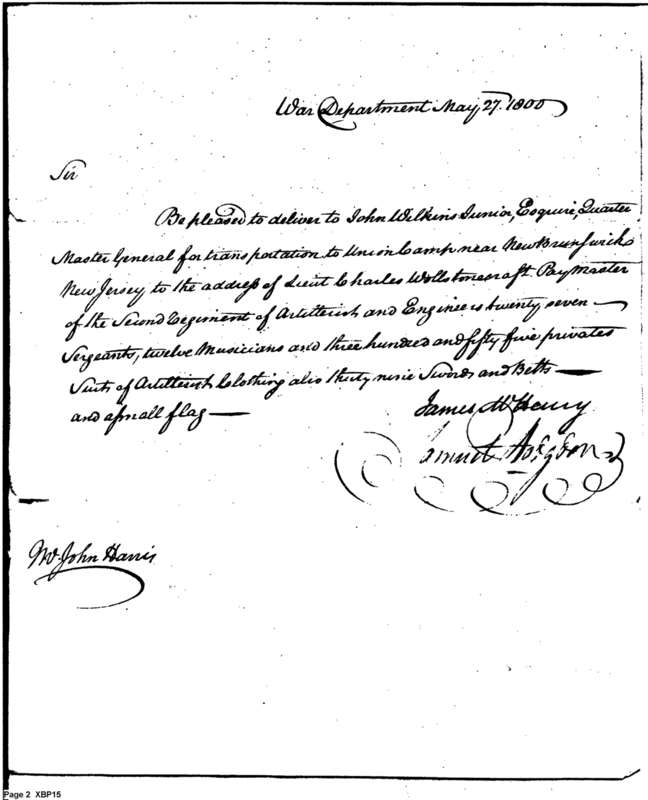 War Department May, 27. 1800
Sir
Be pleased to deliver to John Wilkins Junior, Esquire, Quarter
Master General for transportation to Union Camp near New Brunswick
New Jersey to the address of Lieut Charles Wollstonecraft Pay Master
of the Second Regiment of Artillerist and Engineers twenty seven
Sergeants, twelve Musicians and three hundred and fifty five privates
Suits of Artillerist Clothing also thirty nine Swords and Belts
and a small flag
James McHenry
Samuel Hodgdon
Mr. John Harris
Page 2 XBP15